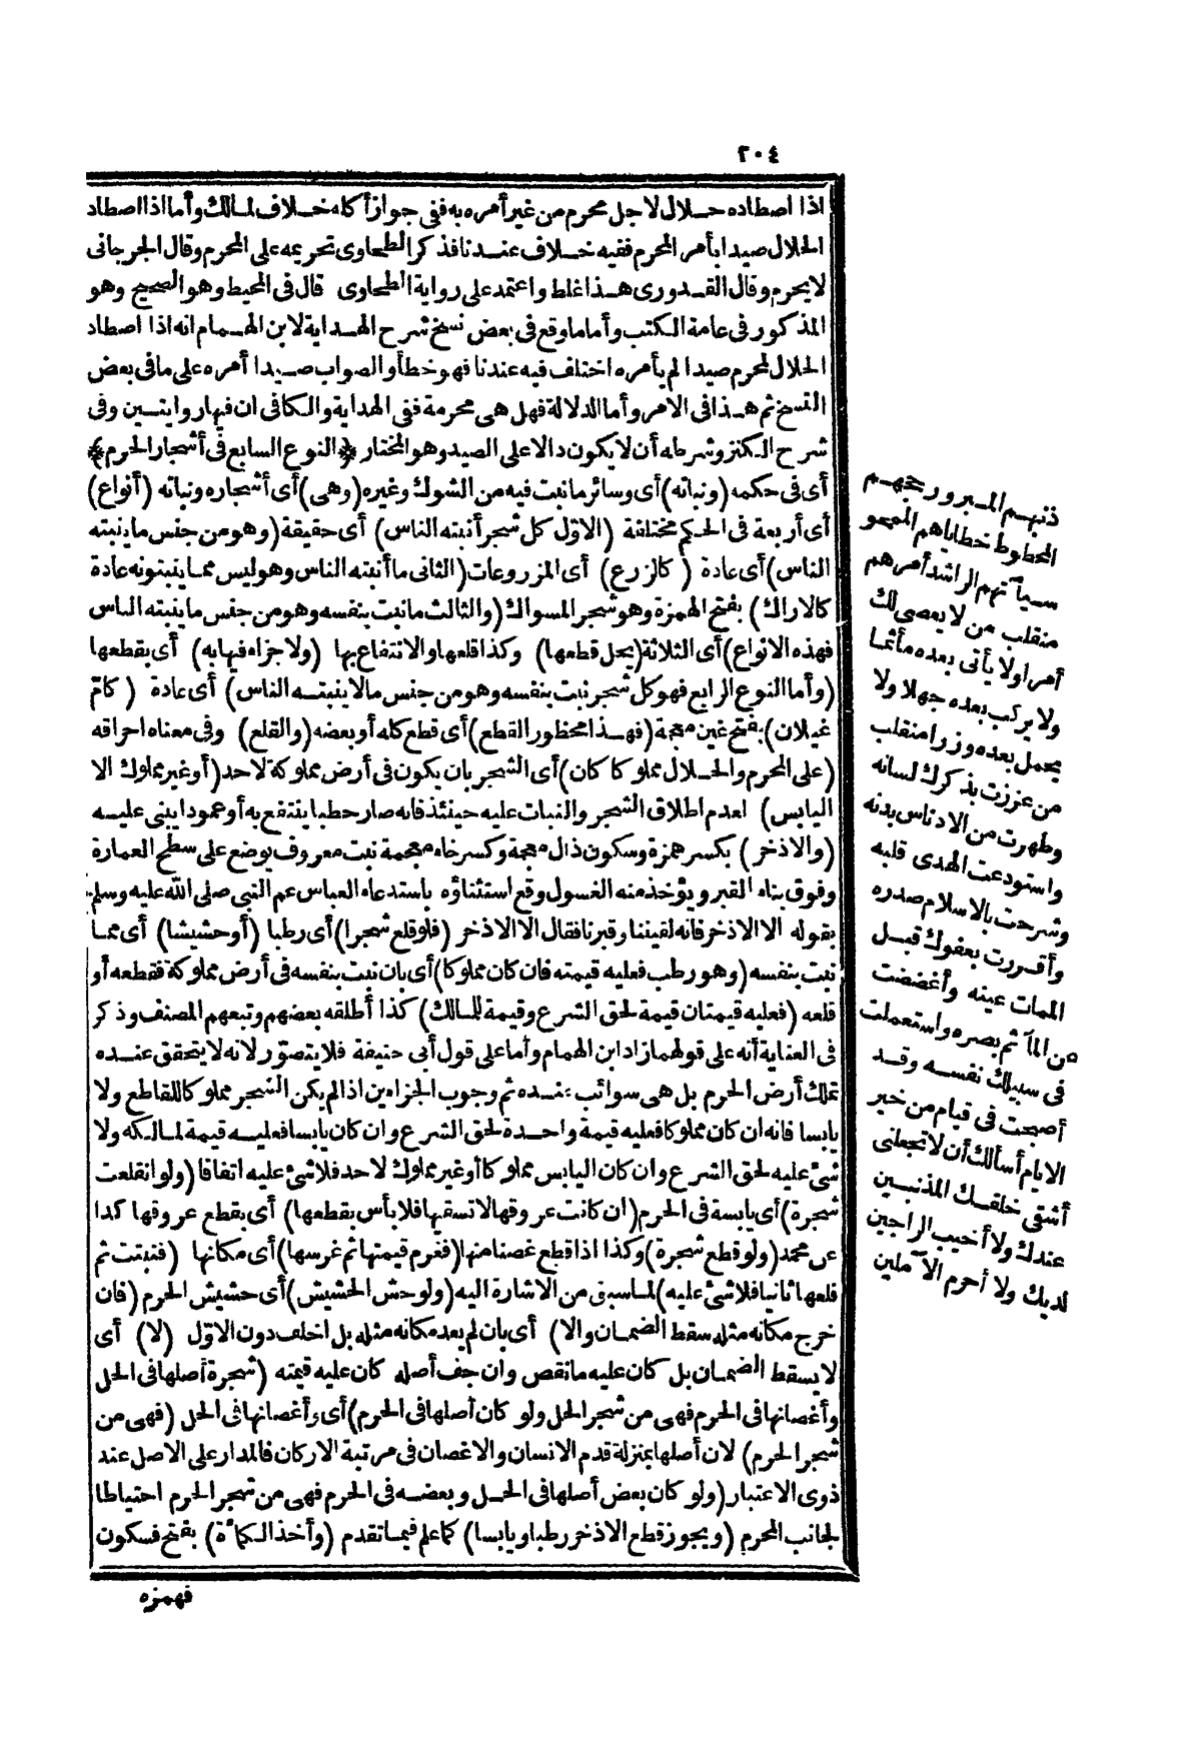 ٢٠٤
اذا اصطاده حلال لاجل محرم من غير أمره به ففي جواز أكله خلاف لمالك وأما اذا اصطاد
الحلال صيدا بأمر المحرم ففيه خلاف عندنا فذكر الطحاوى تحريمه على المحرم وقال الجرجانى
لا يحرم وقال القدورى هذا غلط واعتمد على رواية الطحاوى قال فى المحيط وهو الصحيح وهو
المذكور فى عامة الكتب وأما ما وقع فى بعض نسخ شرح الهداية لابن الهمام انه اذا اصطاد
الحلال لمحرم صيدا لم يأمره اختلف فيه عندنا فهو خطأ والصواب صيدا أمره على ما فى بعض
النسخ ثم هذا فى الامر وأما الدلالة فهل هى محرمة ففى الهداية والكافى ان فيها روايتين وفى
شرح الكنز وشرطه أن لا يكون دالا على الصيد وهو المختار ﴿النوع السابع فى أشجار الحرم﴾
أى فى حكمه (ونباته) أى وسائر ما نبت فيه من الشوك وغيره (وهى) أى أشجاره ونباته (أنواع)
أى أربعة فى الحكم مختلفة (الاوّل كل شجر أنبته الناس) أى حقيقة (وهو من جنس ما ينبته
الناس) أى عادة (كالزرع) أى المزروعات (الثانى ما أنبته الناس وهو ليس مما ينبتونه عادة
كالاراك) بفتح الهمزة وهو شجر المسواك (والثالث ما نبت بنفسه وهو من جنس ما ينبته الناس
فهذه الانواع) أى الثلاثة (يحل قطعها) وكذا قلعها والانتفاع بها (ولا جزاء فيها به) أى بقطعها
(وأما النوع الرابع فهو كل شجر نبت بنفسه وهو من جنس ما لا ينبته الناس) أى عادة (كأمّ
غيلان) بفتح غين معجمة (فهذا محظور القطع) أى قطع كله أو بعضه (والقلع) وفى معناه احراقه
(على المحرم والحلال مملوكا كان) أى الشجر بان يكون فى أرض مملوكة لاحد (أو غير مملوك الا
اليابس) لعدم اطلاق الشجر والنبات عليه حينئذ فانه صار حطبا ينتفع به أو عمودا يبنى عليه
(والاذخر) بكسر همزة وسكون ذال معجمة وكسر خاء معجمة نبت معروف يوضع على سطح العمارة
وفوق بناء القبر ويؤخذ منه الغسول وقع استثناؤه باستدعاء العباس عم النبى صلى الله عليه وسلم
بقوله الا الاذخر فانه لقيننا وقبرنا فقال الا الاذخر (فلو قلع شجرا) أى رطبا (أو حشيشا) أى مما
نبت بنفسه (وهو رطب فعليه قيمته فان كان مملوكا) أى بان نبت بنفسه فى أرض مملوكة فقطعه أو
قلعه (فعليه قيمتان قيمة لحق الشرع وقيمة للمالك) كذا أطلقه بعضهم وتبعهم المصنف وذكر
فى العناية أنه على قولهما زاد ابن الهمام وأما على قول أبى حنيفة فلا يتصوّر لانه لا يتحقق عنده
تملك أرض الحرم بل هى سوائب عنده ثم وجوب الجزاءين اذا لم يكن الشجر مملوكا للقاطع ولا
يابسا فانه ان كان مملوكا فعليه قيمة واحدة لحق الشرع وان كان يابسا فعليه قيمة لمالكه ولا
شئ عليه لحق الشرع وان كان اليابس مملوكا أو غير مملوك لاحد فلا شئ عليه اتفاقا (ولو انقلعت
شجرة) أى يابسة فى الحرم (ان كانت عروقها لا تسقيها فلا بأس بقطعها) أى بقطع عروقها كذا
عن محمد (ولو قطع شجرة) وكذا اذا قطع غصنا منها (فغرم قيمتها ثم غرسها) أى مكانها (فنبتت ثم
قلعها ثانيا فلا شئ عليه) لما سبق من الاشارة اليه (ولو حش الحشيش) أى حشيش الحرم (فان
خرج مكانه مثله سقط الضمان والا) أى بان لم يعد مكانه مثله بل اخلف دون الاوّل (لا) أى
لا يسقط الضمان بل كان عليه ما نقص وان جف أصله كان عليه قيمته (شجرة أصلها فى الحل
وأغصانها فى الحرم فهى من شجر الحل ولو كان أصلها فى الحرم) أى وأغصانها فى الحل (فهى من
شجر الحرم) لان أصلها بمنزلة قدم الانسان والاغصان فى مرتبة الاركان فالمدار على الاصل عند
ذوى الاعتبار (ولو كان بعض أصلها فى الحل وبعضه فى الحرم فهى من شجر الحرم احتياطا
لجانب المحرم (ويجوز قطع الاذخر رطبا ويابسا) كما علم فيما تقدم (وأخذ الكمأة) بفتح فسكون
فهمزة
ذنبهم المبرور حجهم
المحطوط خطاياهم الممحو
سيآتهم الراشد أمرهم
منقلب من لا يعصى لك
أمرا ولا يأتى بعده مأثما
ولا يركب بعده جهلا ولا
يحمل بعده وزرا منقلب
من عززت بذكرك لسانه
وطهرت من الادناس بدنه
واستودعت الهدى قلبه
وشرحت بالاسلام صدره
وأقررت بعفوك قبل
الممات عينه وأغضضت
من المآثم بصره واستعملت
فى سبيلك نفسه وقد
أصبحت فى قيام من خير
الايام أسألك أن لا تجعلنى
أشقى خلقك المذنبين
عندك ولا أخيب الراجين
لديك ولا أحرم الآملين